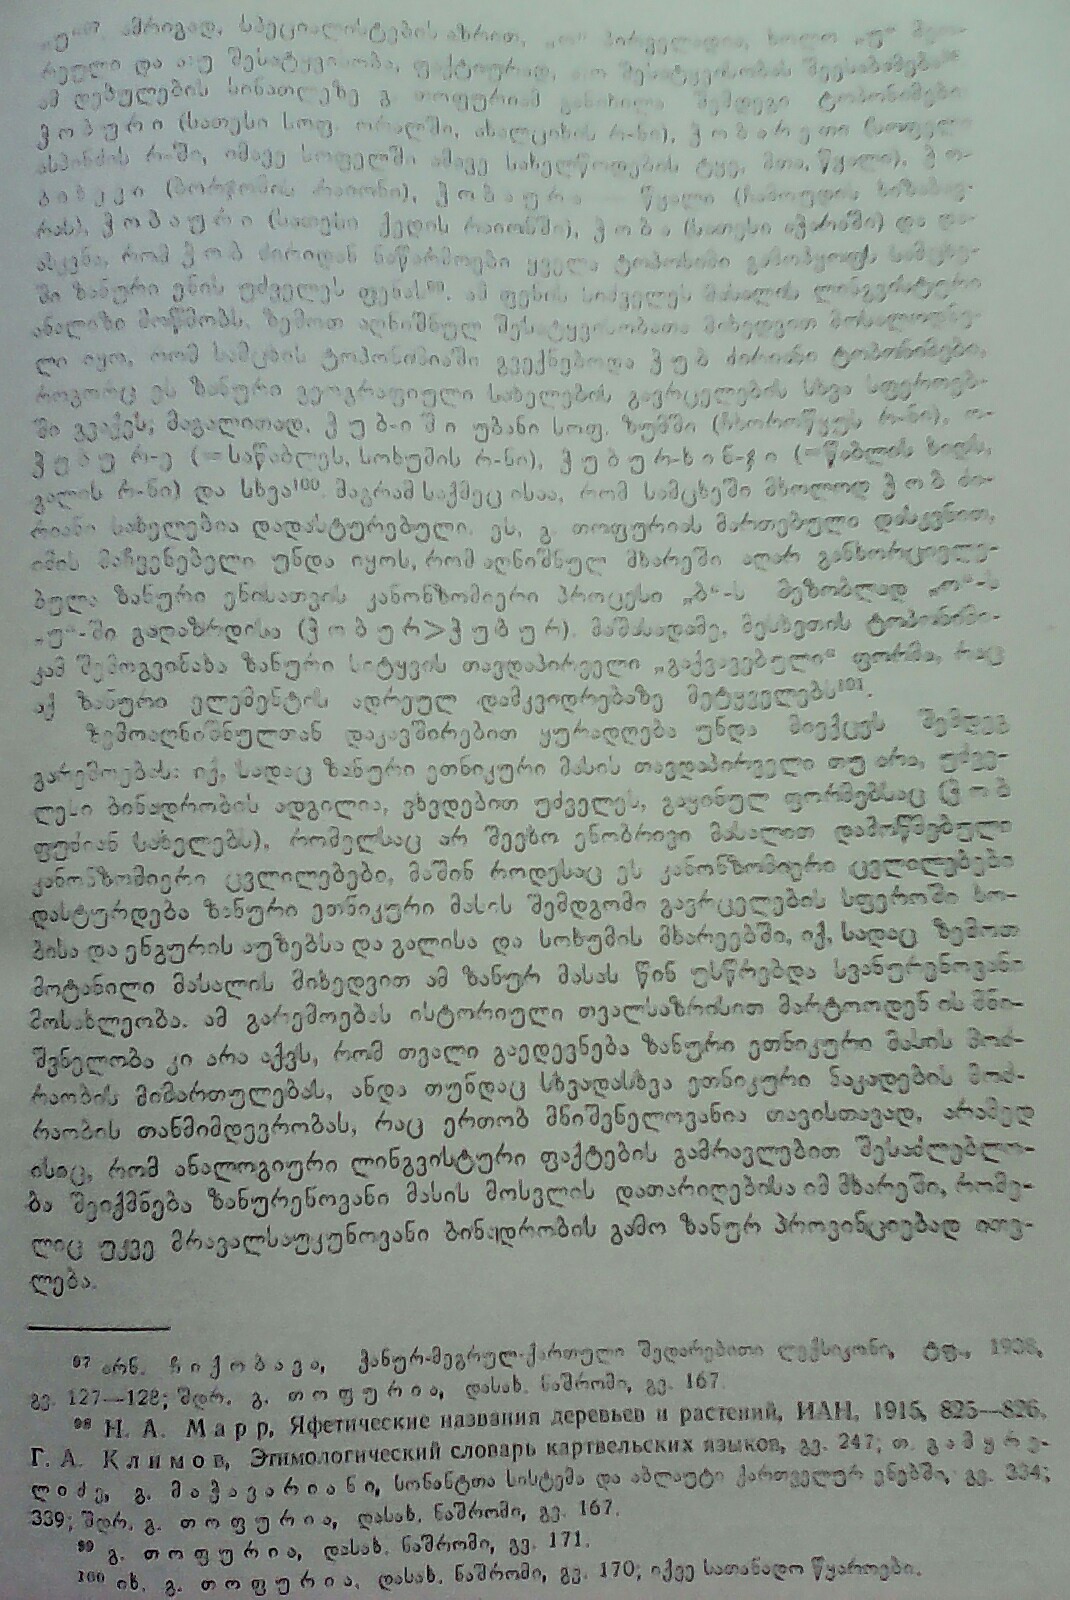 „უ“⁹⁷. ამრიგად, სპეციალისტების აზრით, „ო“ პირველადია, ხოლო „უ“ მეო-
რეული და ა:უ შესატყვისობა, ფაქტიურად, ა:ო შესატყვისობას შეესაბამება⁹⁸
ამ დებულების სინათლეზე გ. თოფურიამ განიხილა შემდეგი ტოპონიმები
ჭობური (სათესი სოფ. ორალში, ახალციხის რ-ნი), ჭობარეთი (სოფელი
ასპინძის რ-ში, იმავე სოფელში ამავე სახელწოდების ტყე, მთა, წყალი), ჭო-
ბისხევი (ბორჯომის რაიონი), ჭობაურა — წყალი (ჩამოუდის
რას), ჭობაური (სათესი ქედის რაიონში), ჭობა (სათესი აჭარაში) და და-
ასკვნა, რომ ჭობ ძირიდან ნაწარმოები ყველა ტოპონიმი გამოხატავს სამცხე-
ში ზანური ენის უძველეს ფენას⁹⁹. ამ ფენის სიძველეს მასალის ლინგვისტური
ანალიზი მოწმობს. ზემოთ აღნიშნულ შესატყვისობათა მიხედვით მოსალოდნე-
ლი იყო, რომ სამცხის ტოპონიმიაში გვექნებოდა ჭუბ ძირიანი ტოპონიმები,
როგორც ეს ზანური გეოგრაფიული სახელების გავრცელების სხვა სფეროებ-
ში გვაქვს; მაგალითად, ჭუბ-იში უბანი სოფ. ზუმში (ჩხოროწყუს რ-ნი), ო-
ჭუბურ-ე (=საწაბლეს, სოხუმის რ-ნი), ჭუბურ-ხინ-ჯი (=წაბლის ხიდს,
გალის რ-ნი) და სხვა¹⁰⁰. მაგრამ საქმეც ისაა, რომ სამცხეში მხოლოდ ჭობ ძი-
რიანი სახელებია დადასტურებული. ეს, გ. თოფურიას მართებული დასკვნით,
იმის მაჩვენებელი უნდა იყოს, რომ აღნიშნულ მხარეში აღარ განხორციელე-
ბულა ზანური ენისათვის კანონზომიერი პროცესი „ბ“-ს მეზობლად „ო“-ს
„უ“-ში გადაზრდისა (ჭობურ>ჭუბურ). მაშასადამე, მესხეთის ტოპონიმი-
კამ შემოგვინახა ზანური სიტყვის თავდაპირველი „გაქვავებული“ ფორმა, რაც
აქ ზანური ელემენტის ადრეულ დამკვიდრებაზე მეტყველებს¹⁰¹.
ზემოაღნიშნულთან დაკავშირებით ყურადღება უნდა მიექცეს შემდეგ
გარემოებას: იქ, სადაც ზანური ეთნიკური მასის თავდაპირველი თუ არა, უძვე-
ლესი ბინადრობის ადგილია, ვხვდებით უძველეს, გაყინულ ფორმებსაც (ჭობ
ფუძიან სახელებს), რომელსაც არ შეეხო ენობრივი მასალით დამოწმებული
კანონზომიერი ცვლილებები, მაშინ როდესაც ეს კანონზომიერი ცვლილებები
დასტურდება ზანური ეთნიკური მასის შემდგომი გავრცელების სფეროში ხო-
ბისა და ენგურის აუზებსა და გალისა და სოხუმის მხარეებში, იქ, სადაც ზემოთ
მოტანილი მასალის მიხედვით ამ ზანურ მასას წინ უსწრებდა სვანურენოვანი
მოსახლეობა. ამ გარემოებას ისტორიული თვალსაზრისით მარტოოდენ ის მნი-
შვნელობა კი არა აქვს, რომ თვალი გაედევნება ზანური ეთნიკური მასის მოძ-
რაობის მიმართულებას, ანდა თუნდაც სხვადასხვა ეთნიკური ნაკადების მოძ-
რაობის თანმიმდევრობას, რაც ერთობ მნიშვნელოვანია თავისთავად, არამედ
ისიც, რომ ანალოგიური ლინგვისტური ფაქტების გამრავლებით შესაძლებლო-
ბა შეიქმნება ზანურენოვანი მასის მოსვლის დათარიღებისა იმ მხარეში, რომე-
ლიც უკვე მრავალსაუკუნოვანი ბინადრობის გამო ზანურ პროვინციებად ითვ-
ლება.
⁹⁷ არნ. ჩიქობავა, ჭანურ-მეგრულ-ქართული შედარებითი ლექსიკონი, ტფ., 1938,
გვ. 127—128; შდრ. გ. თოფურია, დასახ. ნაშრომი, გვ. 167.
⁹⁸ Н. А. Марр, Яфетические названия деревьев и растений, ИАН, 1915, 825—826.
Г. А. Климов, Этимологический словарь картвельских языков, გვ. 247; თ. გამყრე-
ლიძე, გ. მაჭავარიანი, სონანტთა სისტემა და აბლაუტი ქართველურ ენებში, გვ. 334;
339; შდრ. გ. თოფურია, დასახ. ნაშრომი, გვ. 167.
⁹⁹ გ. თოფურია, დასახ. ნაშრომი, გვ. 171.
¹⁰⁰ იხ. გ. თოფურია, დასახ. ნაშრომი, გვ. 170; იქვე სათანადო წყაროები.